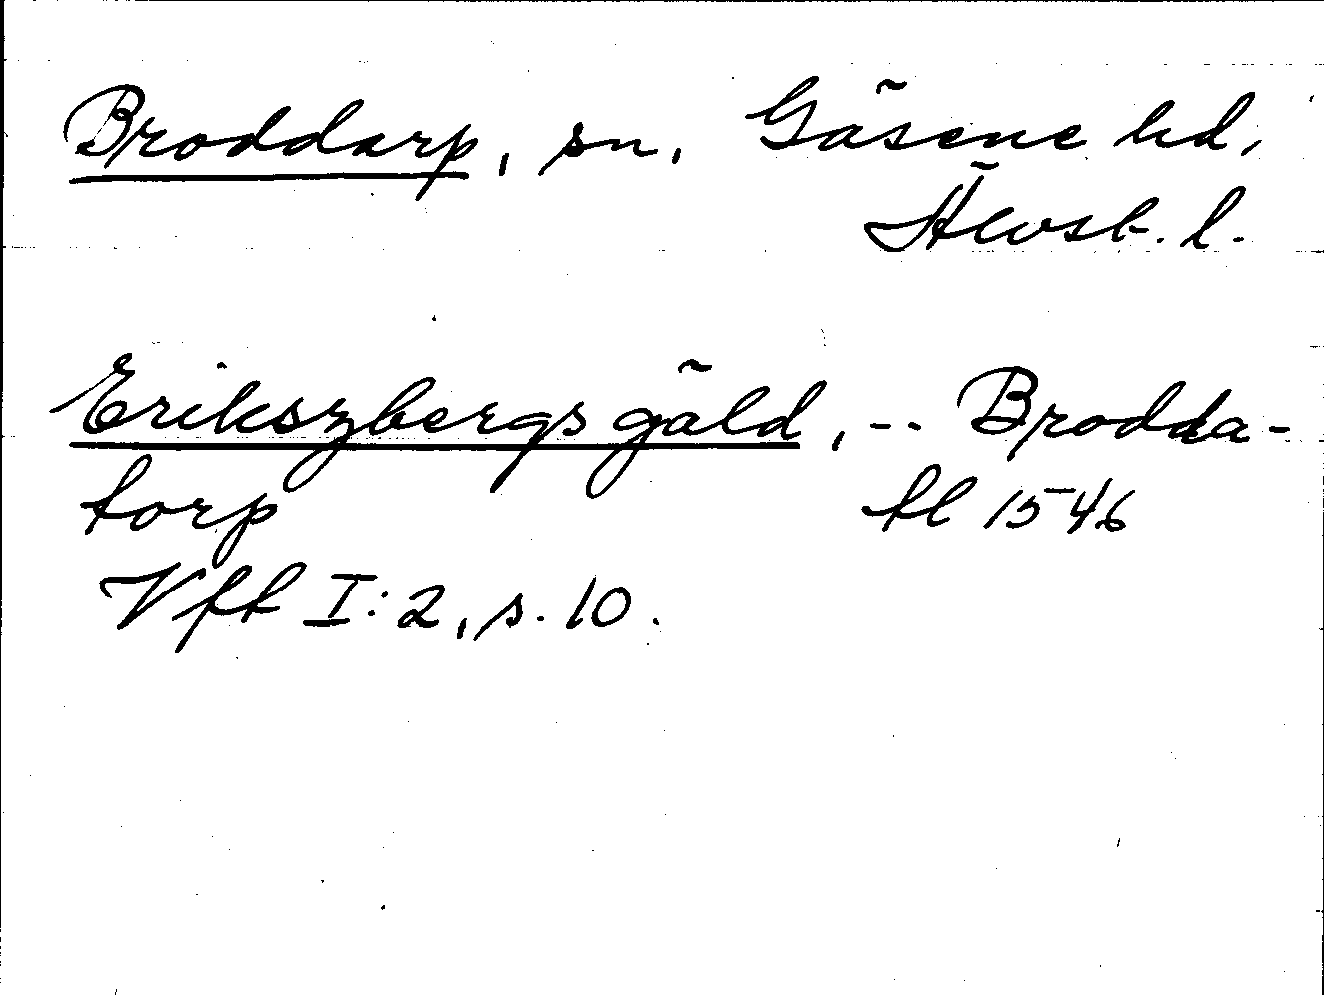 Broddarp, sn, Gäsene hd,
Älvsb. l.
Erikszbergs gäld, -- Brodda-
torp tl 1546
Vft I:2, s. 10.